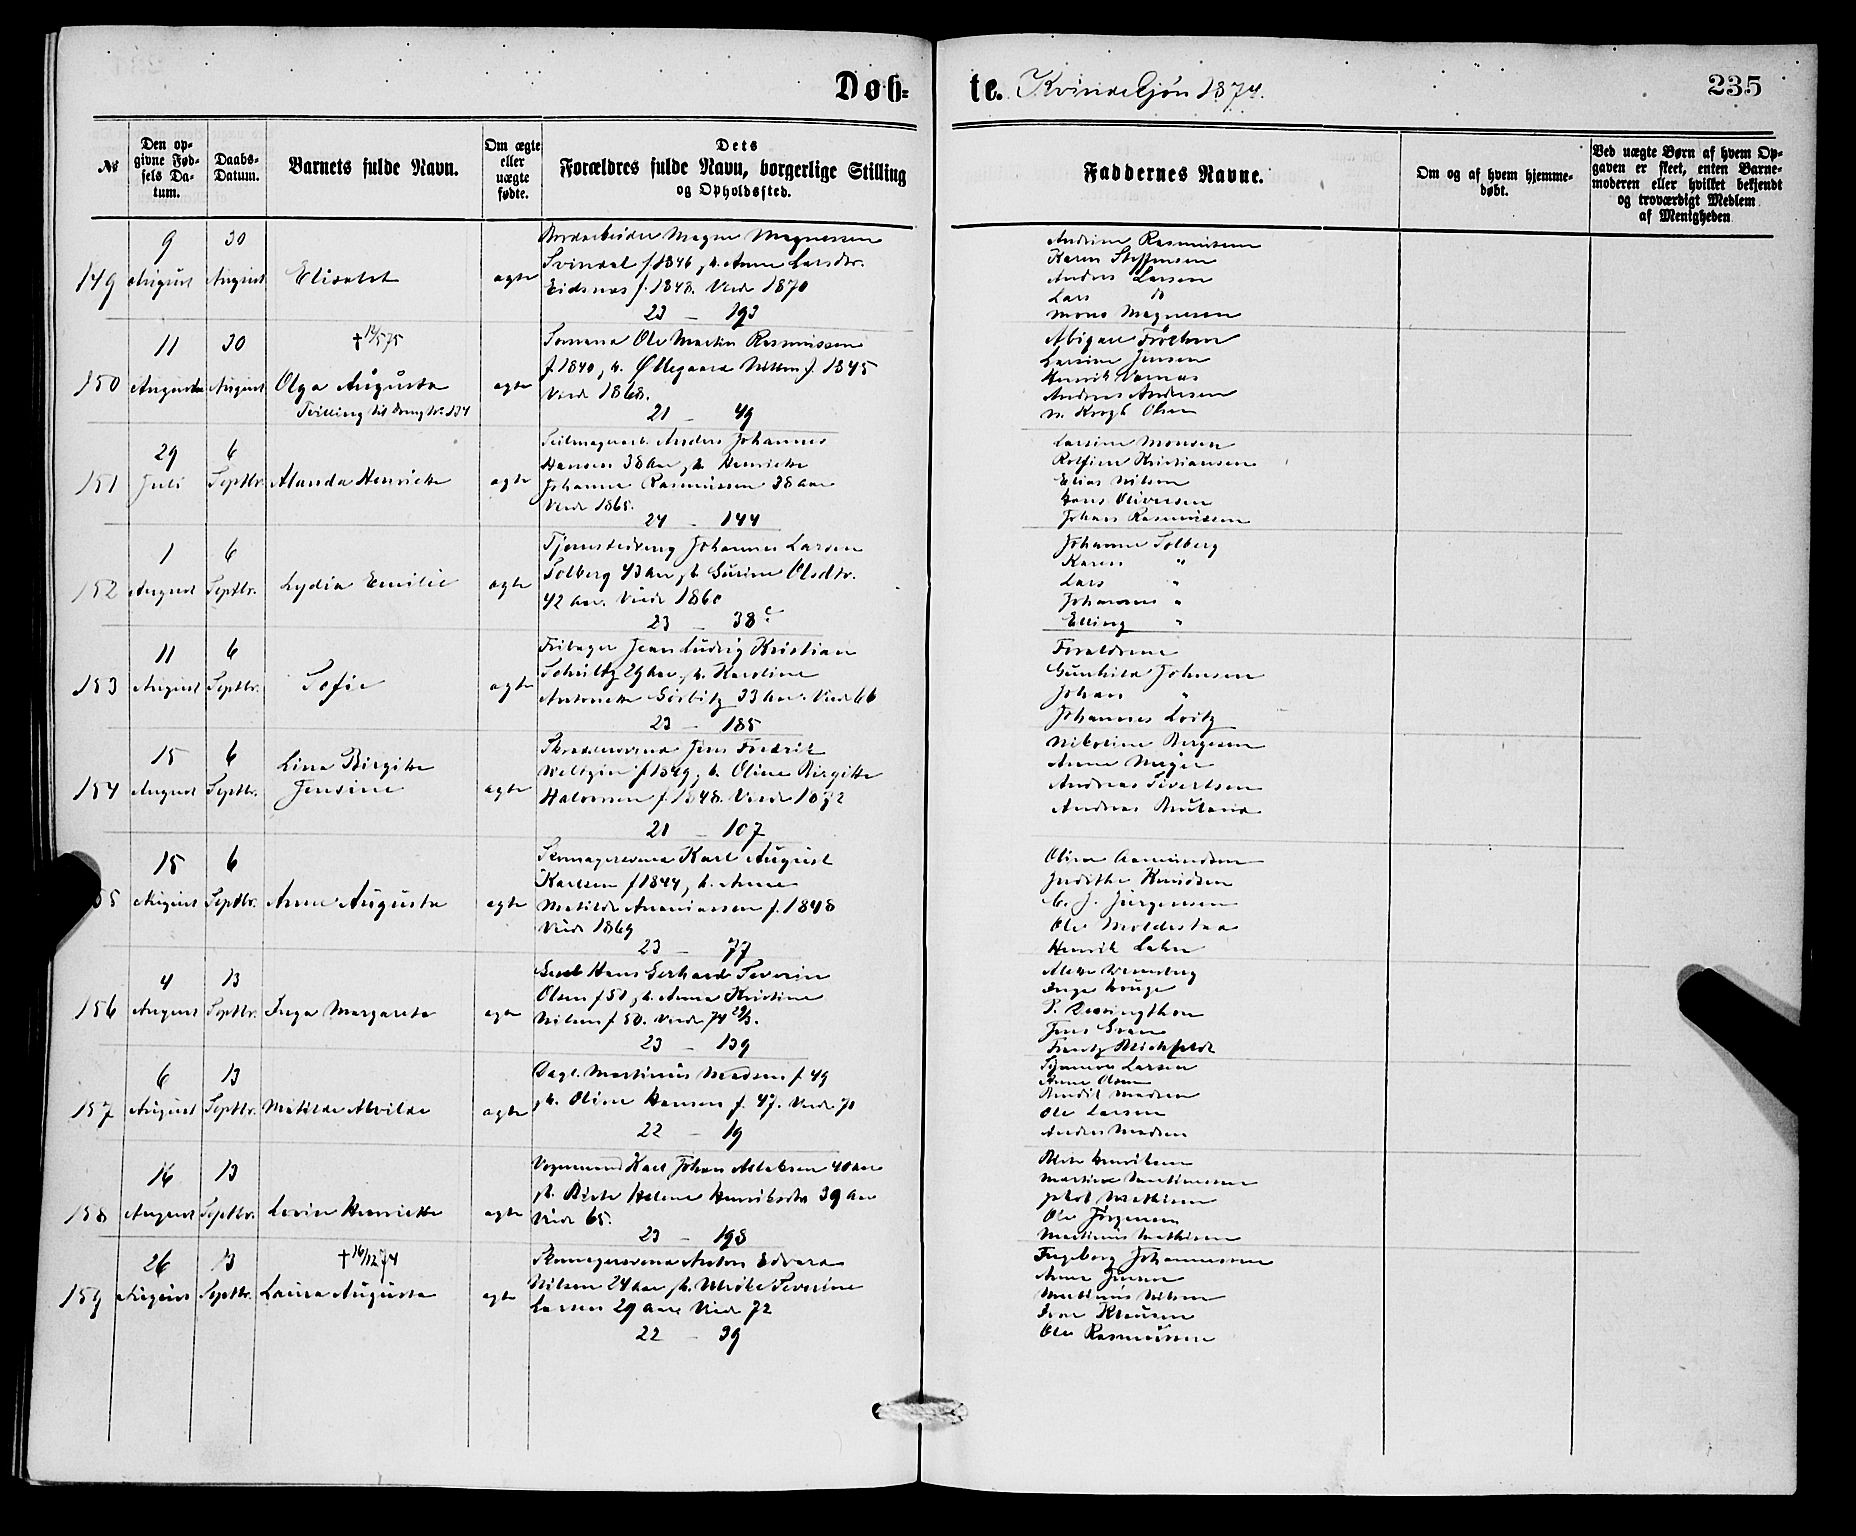 Døb=
te. Kvindekjøn 1874.
235
№
Den op-
givne Fød-
sels Da-
tum.
Daabs-
Datum.
Barnets fulde Navn.
Om ægte
eller
uægte
fødte.
Dets
Forældres fulde Navn, borgerlige Stilling
og Opholdssted.
Faddernes Navne.
Om og af hvem hjemme-
døbt.
Ved uægte Børn af hvem Op-
gaven er skeet, enten Barne-
moderen eller hvilket bekjendt
og troværdigt Medlem
af Menigheden
149
9
August
30
August
Elisabet
ægte
Magne Magnessen
Svindal f 1846, h. Anne Larsdtr.
Eidsnes f. 1848. Viede 1870
23 - 193
Andrine Rasmussen
Karen Steffensen
Anders Larsen
Lars do
Mons Magnesen
150
11
August
30
August
† 12/5 75
Olga Augusta
Tvilling til dreng No 134
ægte
Sømand Ole Martin Rasmussen
f 1840, h. Øllegaard Nilsen f. 1845
Viede 1868.
21 - 49
Abigael
Larsine Jensen
Henrik
Andreas Andersen
N. Krogh Olsen
151
29
Juli
6
Septbr
Alanda Henrikke
ægte
Seilmagerarb. Anders Johannes
Hansen 38 Aar, h. Henrikke
Johanne Rasmussen 38 aar
Viede 1865.
24 - 144
Larsine Monsen
Kristiansen
Elias Nilsen
Hans Oliversen
Johan Rasmussen
152
1
August
6
Septbr.
Lydia Emilie
ægte
Johannes Larsen
Solberg 43 Aar, h. Gurine Olsdtr.
42 Aar. Viede 1860
23 - 38 c
Johanne Solberg
Karen "
Lars "
Johannes "
Elling "
153
11
August
6
Septbr.
Sofie
ægte
Jean Ludvig Kristian
Schultz 29 Aar, h. Karoline
Antonette 33 Aar. Viede 66
23 - 185
Forældrene
Gunhild Johnsen
Johan "
Johannes Loitz
154
15
August
6
Septbr.
Lina Birgitte
Jensine
ægte
Skræddersvend Jens Fredrik
f 1849, h. Oline Birgitte
Halvorsen f. 1848. Viede 1872
21 - 107
Nikoline Bergesen
Anne Meyer
Andreas Sivertsen
Andreas
15
August
6
Septbr.
Anne Augusta
ægte
Skomagersvend Karl August
Karlsen f 1844, h. Anne
Matilde f. 1848
Viede 1869
23 - 77
Olina Aamundsen
Judithe Knudsen
C. J. Jørgensen
Ole Moldestad
Henrik
156
4
August
13
Septbr.
Inga Margareta
ægte
Hans Gerhard Severin
Olsen f 51, h. Anna Kristine
Nilsen f 50. Viede 74 29/3.
23 - 139
Inge Houge
Jens
157
6
August
13
Septbr.
Matilde Alvilde
ægte
Dagl. Martinius Madsen f. 49
h. Oline Hansen f. 47. Viede 70
22 - 19
Larsen
Anne Olsen
Bendik Madsen
Ole Larsen
Anders Madsen
158
16
August
13
Septbr.
Lovise Henrikke
ægte
Vognmand Karl Johan Aslaksen 40 aar
h. Birte Helene Henriksdtr 39 Aar
Viede 65.
23 - 193
Henriksen
Martine Martinussen
Jakob Mathisen
Ole Jørgensen
Martinus Mathisen
159
26
August
13
Septbr.
† 16/12 74
Laura Augusta
ægte
Skomagersvend Anton Edvard
Nilsen 24 Aar, h. Ulrikke Severine
Larsen 29 Aar Viede 72
22 - 39
Ingeborg Johannesen
Anne Jensen
Martinus Nilsen
Iver Knudsen
Ole Rasmussen